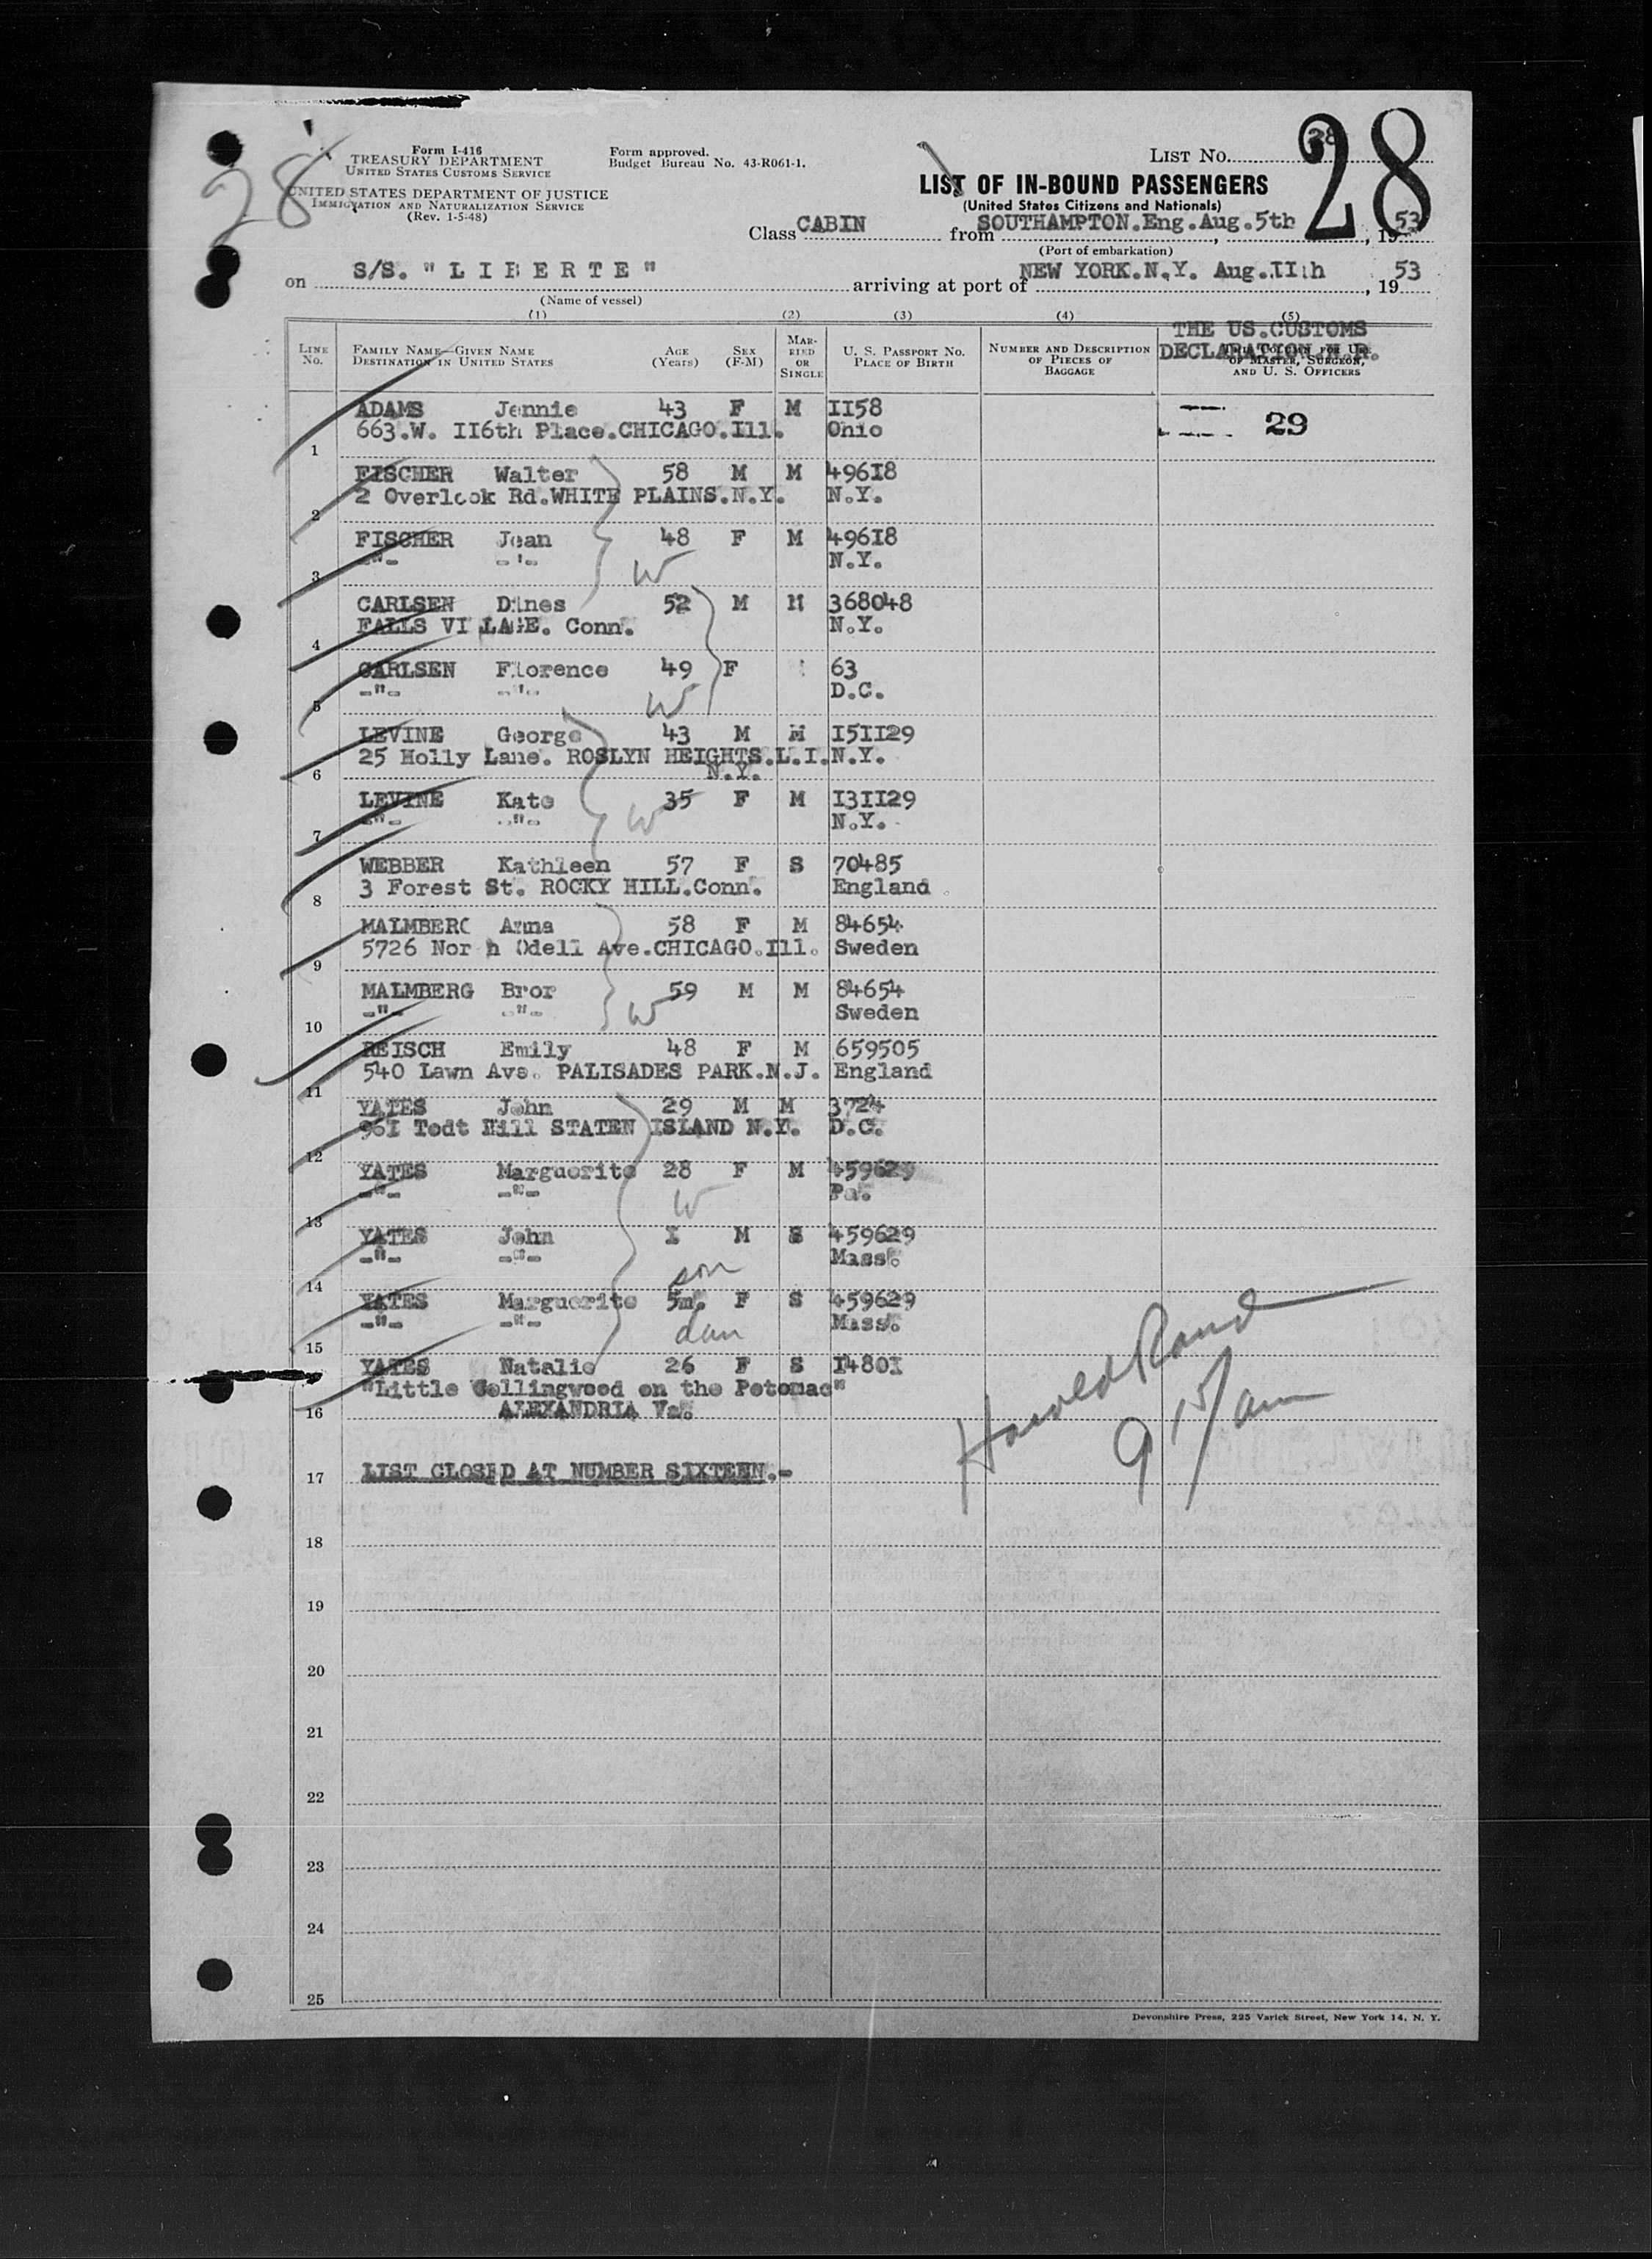 28
Form I-416
TREASURY DEPARTMENT
UNITED STATES CUSTOMS SERVICE
UNITED STATES DEPARTMENT OF JUSTICE
IMMIGRATION AND NATURALIZATION SERVICE
(Rev. 1-5-48)
Form approved.
Budget Bureau No. 43-R061-1.
LIST No. 28
28
LIST OF IN-BOUND PASSENGERS
(United States Citizens and Nationals)
Class CABIN from SOUTHAMPTON.Eng.Aug.5th, 1953
(Port of embarkation)
on S/S. "LIBERTE" arriving at port of NEW YORK.N.Y. Aug.IIth, 1953
(Name of vessel)
(1) (2) (3) (4) (5)
THE US.CUSTOMS
DECLARATION.N.R.
LINE No. FAMILY NAME—GIVEN NAME DESTINATION IN UNITED STATES AGE (Years) SEX (F-M) MARRIED OR SINGLE U. S. PASSPORT No. PLACE OF BIRTH NUMBER AND DESCRIPTION OF PIECES OF BAGGAGE THIS COLUMN FOR USE OF MASTER, SURGEON, AND U. S. OFFICERS
ADAMS Jennie 43 F M II58
1 663.W. II6th Place.CHICAGO.Ill. Ohio 29
FISCHER Walter 58 M M 496I8
2 2 Overlook Rd.WHITE PLAINS.N.Y. N.Y.
FISCHER Jean 48 F M 496I8
3 -"- -"- N.Y.
W
CARLSEN Dines 52 M M 368048
4 FALLS VILLAGE. Conn. N.Y.
CARLSEN Florence 49 F 63
5 -"- -"- D.C.
W
LEVINE George 43 M M I5II29
6 25 Holly Lane. ROSLYN HEIGHTS.L.I. N.Y.
N.Y.
LEVINE Kate 35 F M I3II29
7 -"- -"- N.Y.
W
WEBBER Kathleen 57 F S 70485
8 3 Forest St. ROCKY HILL.Conn. England
MALMBERG Anna 58 F M 84654
9 5726 Nor h Odell Ave.CHICAGO.Ill. Sweden
MALMBERG Bror 59 M M 84654
10 -"- -"- Sweden
W
REISCH Emily 48 F M 659505
11 540 Lawn Ave. PALISADES PARK.N.J. England
YATES John 29 M M 3724
12 96I Todt Hill STATEN ISLAND N.Y. D.C.
YATES Marguerite 28 F M 459629
13 -"- -"- Pa.
W
YATES John I M S 459629
14 -"- -"- Mass.
son
YATES Marguerite 5m. F S 459629
15 -"- -"- Mass.
dau
YATES Natalie 26 F S I480I
"Little Collingwood on the Potomac"
16 ALEXANDRIA Va.
17 LIST CLOSED AT NUMBER SIXTEEN.-
Harold Rand
9 15/am
18
19
20
21
22
23
24
25
Devonshire Press, 225 Varick Street, New York 14, N. Y.